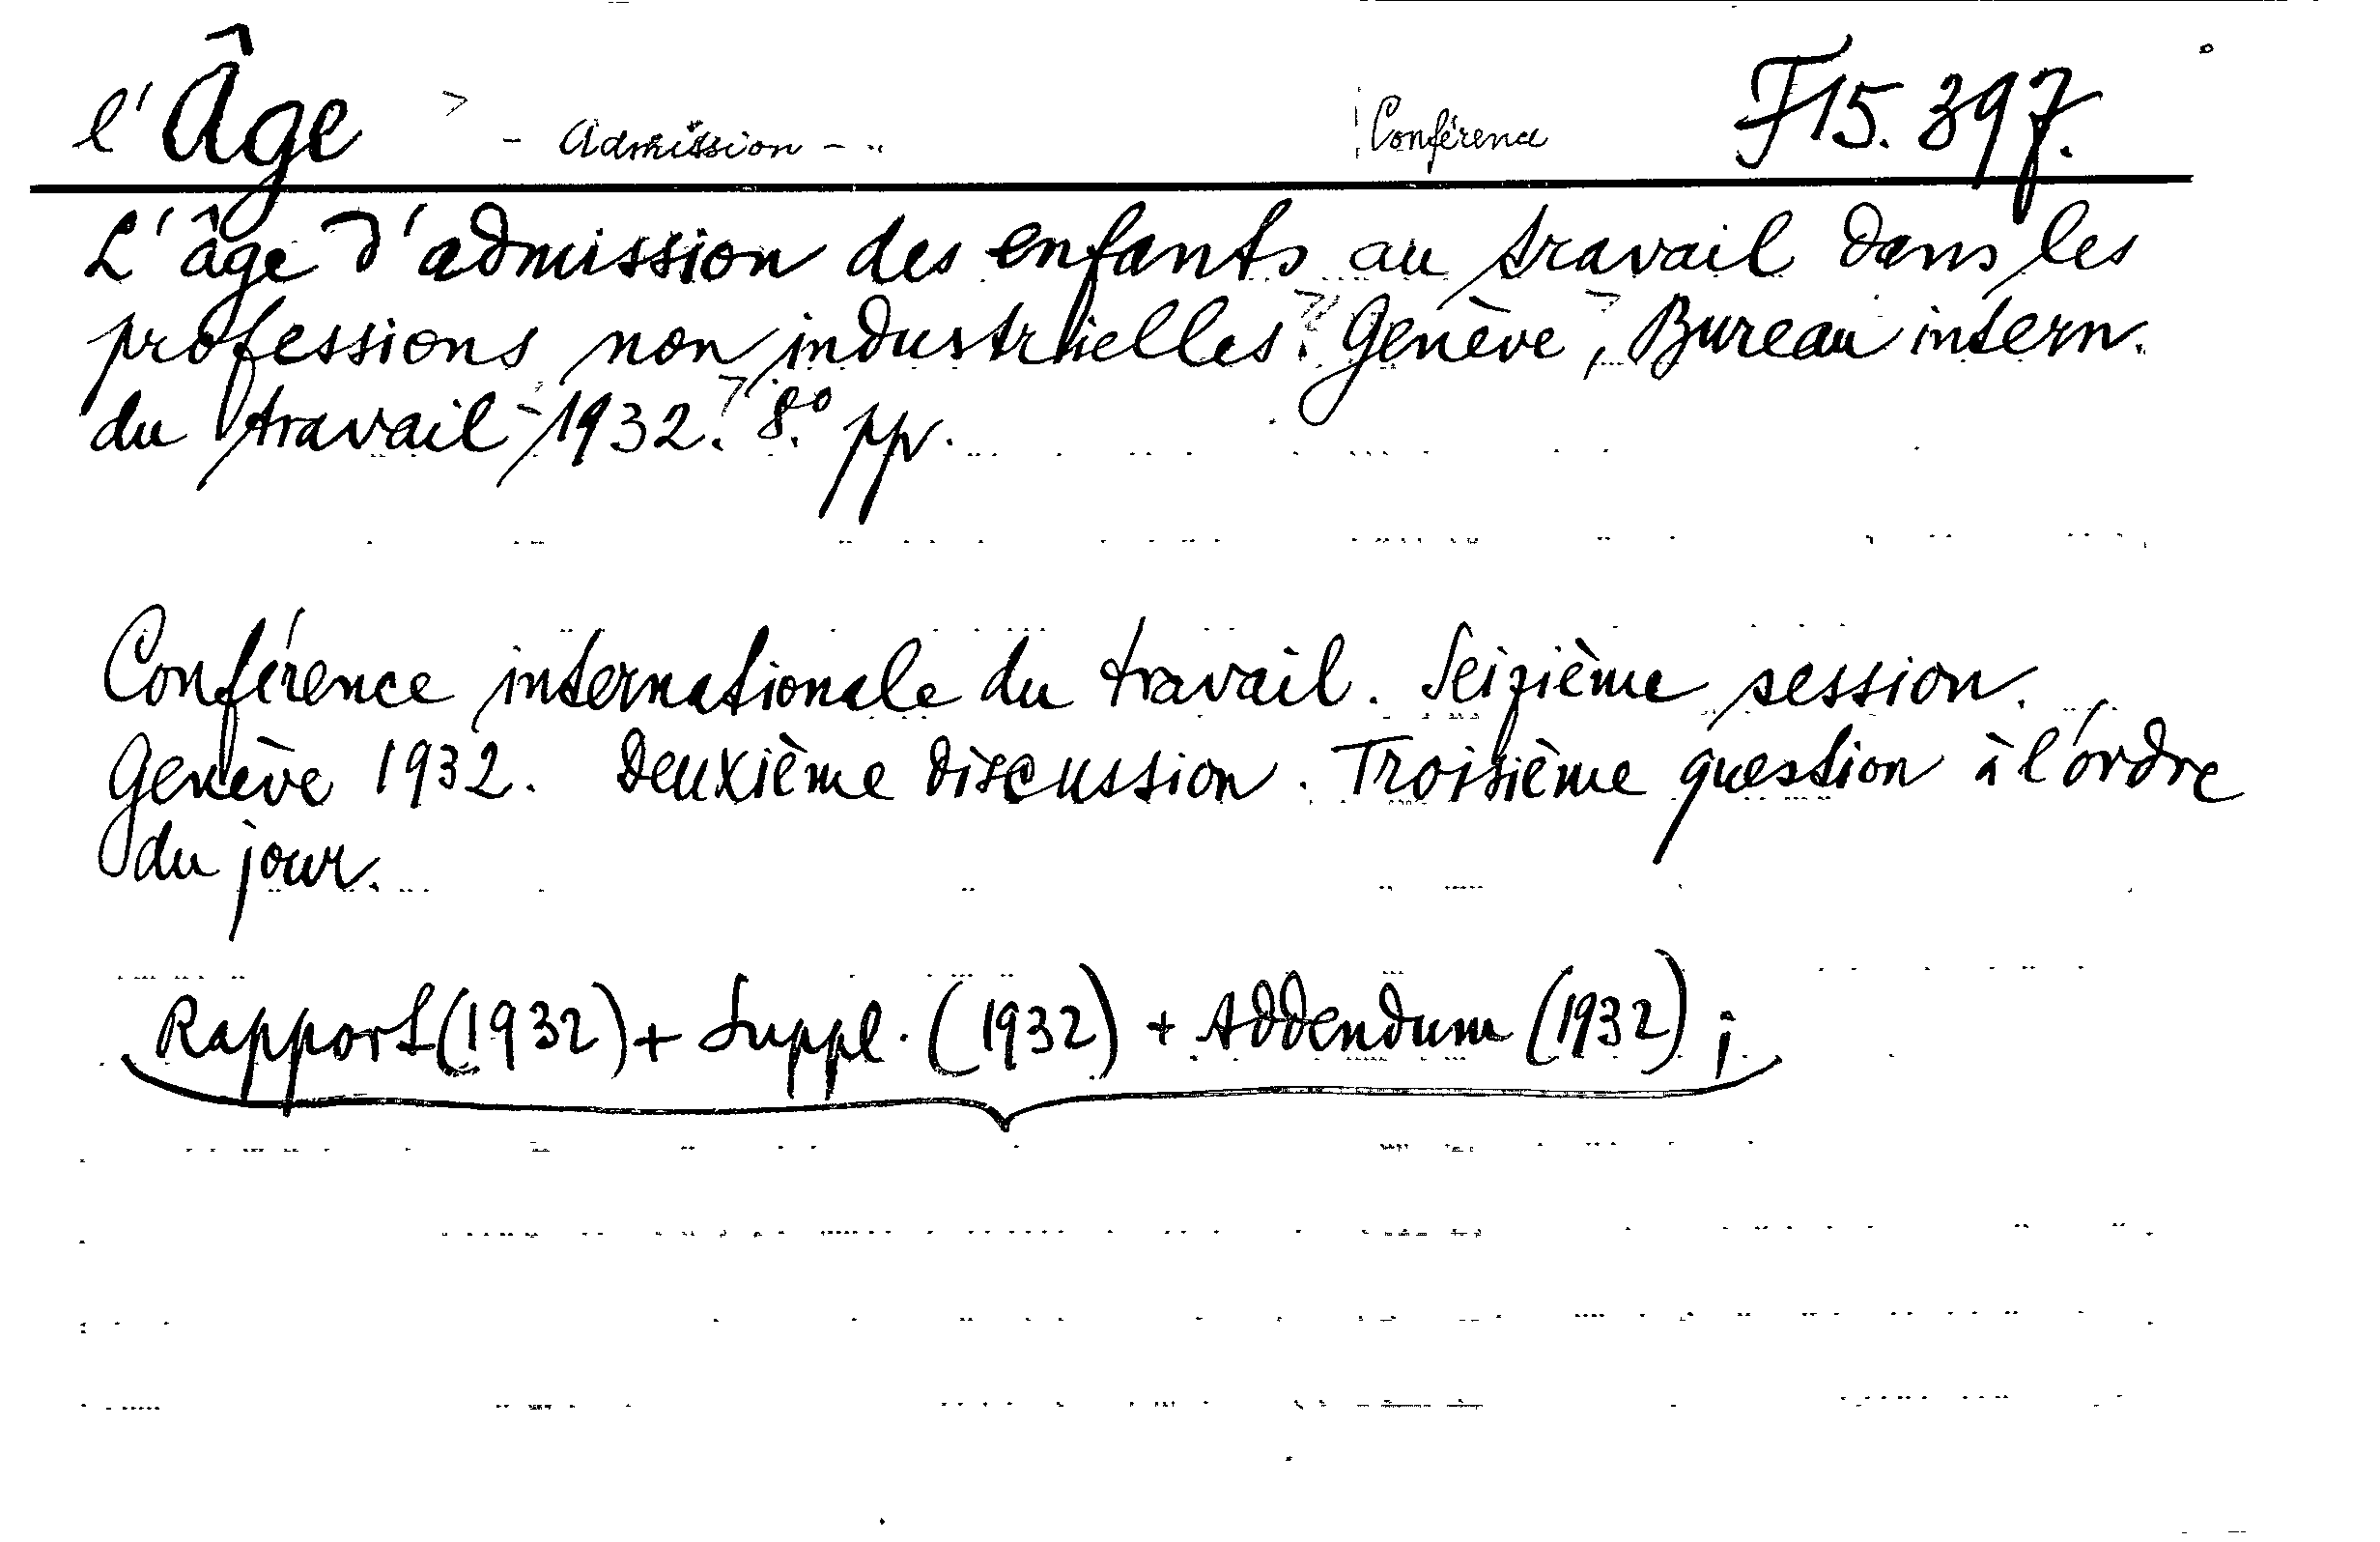 l'Âge - Admission - Conférence F15.397.
L'âge d'admission des enfants au travail dans les
professions non industrielles. Genève, Bureau intern.
du travail - 1932. 8.° pp.
Conférence internationale du travail. Seizième session.
Genève 1932. Deuxième discussion. Troisième question à l'ordre
du jour.
Rapport (1932) + Suppl. (1932) + Addendum (1932) ;